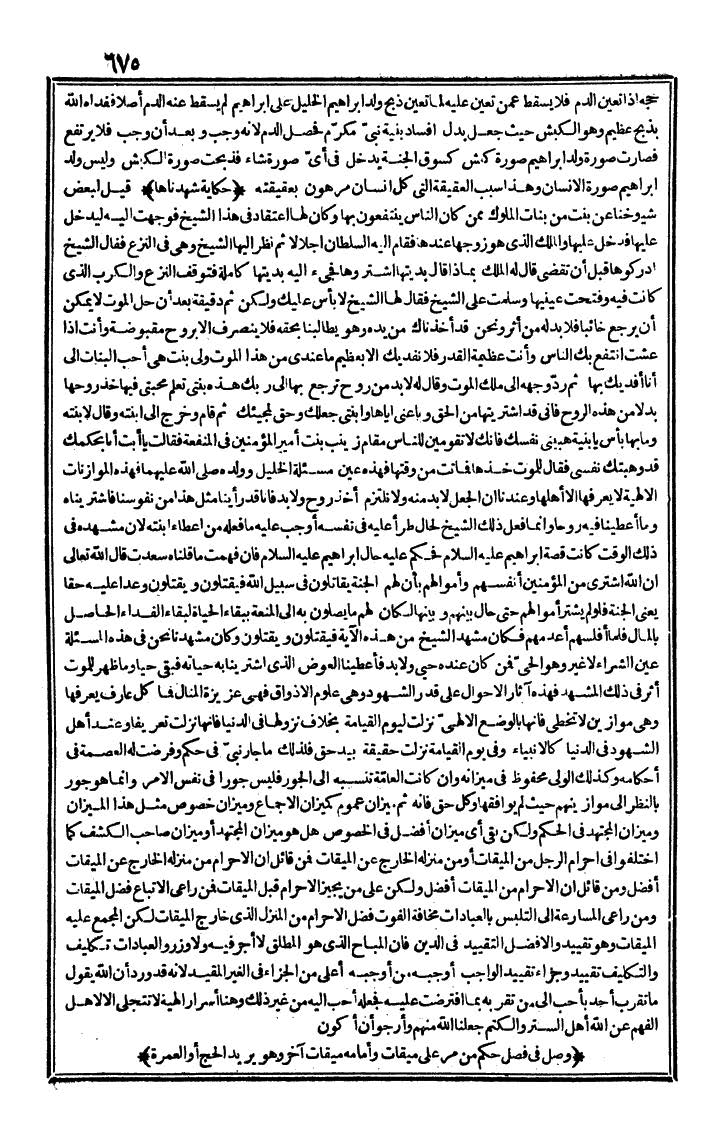 ٦٧٥
حجه اذا تعين الدم فلا يسقط عمن تعين عليه لما تعين ذبح ولد ابراهيم الخليل على ابراهيم لم يسقط عنه الدم أصلا ففداه الله
بذبح عظيم وهو الكبش حيث جعل بدل افساد بنية نبىّ مكرّم فحصل الدم لانه وجب وبعد أن وجب فلا يرتفع
فصارت صورة ولد ابراهيم صورة كبش كسوق الجنة يدخل فى أىّ صورة شاء فذبحت صورة الكبش وليس ولد
ابراهيم صورة الانسان وهذا سبب العقيقة التى كل انسان مرهون بعقيقته ﴿حكاية شهدناها﴾ قيل لبعض
شيوخنا عن بنت من بنات الملوك ممن كان الناس ينتفعون بها وكان لها اعتقاد فى هذا الشيخ فوجهت اليه ليدخل
عليها فدخل عليها والملك الذى هو زوجها عندها فقام اليه السلطان اجلالا ثم نظر اليها الشيخ وهى فى النزع فقال الشيخ
ادركوها قبل أن تقضى قال له الملك بماذا قال بديتها اشتروها فجىء اليه بديتها كاملة فتوقف النزع والكرب الذى
كانت فيه وفتحت عينيها وسلمت على الشيخ فقال لها الشيخ لا بأس عليك ولكن ثم دقيقة بعد أن حل الموت لا يمكن
أن يرجع خائبا فلا بد له من أثر ونحن قد أخذناك من يده وهو يطالبنا بحقه فلا ينصرف الا بروح مقبوضة وأنت اذا
عشت انتفع بك الناس وأنت عظيمة القدر فلا نفديك الا بعظيم ما عندى من هذا الموت ولى بنت هى أحب البنات الى
أنا أفديك بها ثم ردّ وجهه الى ملك الموت وقال له لا بد من روح ترجع بها الى ربك هذه بنتى تعلم محبتى فيها خذ روحها
بدلا من هذه الروح فانى قد اشتريتها من الحق وباعنى اياها وابنتى جعلك وحق لمجيئك ثم قام وخرج الى ابنته وقال لابنته
وما بها بأس يا بنية هبينى نفسك فانك لا تقومين للناس مقام زينب بنت أمير المؤمنين فى المنفعة فقالت يا أبت أنا بحكمك
قد وهبتك نفسى فقال للموت خذها فماتت من وقتها فهذه عين مسئلة الخليل وولده صلى الله عليهما فهذه الموازنات
الالهية لا يعرفها الا أهلها وعندنا ان الجعل لا بد منه ولا نلتزم أخذ روح ولا بد فانا قد رأينا مثل هذا من نفوسنا فاشتريناه
وما أعطينا فيه روحا وانما فعل ذلك الشيخ لحال طرأ عليه فى نفسه أوجب عليه ما فعله من اعطاء ابنته لان مشهده فى
ذلك الوقت كانت قصة ابراهيم عليه السلام فحكم عليه حال ابراهيم عليه السلام فان فهمت ما قلناه سعدت قال الله تعالى
ان الله اشترى من المؤمنين أنفسهم وأموالهم بأن لهم الجنة يقاتلون فى سبيل الله فيقتلون ويقتلون وعدا عليه حقا
يعنى الجنة فلو لم يشتر أموالهم حتى حال بينهم وبينها لكان لهم ما يصلون به الى المنعة ببقاء الحياة لبقاء الفداء الحاصل
بالمال فلما أفلسهم أعدمهم فكان مشهد الشيخ من هذه الآية فيقتلون ويقتلون وكان مشهدنا نحن فى هذه المسئلة
عين الشراء لا غير وهو الحىّ فمن كان عنده حيى ولا بد فأعطينا العوض الذى اشترينا به حياته فبقى حيا وما ظهر للموت
أثر فى ذلك المشهد فهذه آثار الاحوال على قدر الشهود وهى علوم الاذواق فهى عزيزة المنال فما كل عارف يعرفها
وهى موازين لا تخطى فانها بالوضع الالهىّ نزلت ليوم القيامة بخلاف نزولها فى الدنيا فانها نزلت تعريفا وعند أهل
الشهود فى الدنيا كالانبياء وفى يوم القيامة نزلت حقيقة بيد حق فلذلك ما جار نبىّ فى حكم وفرضت له العصمة فى
أحكامه وكذلك الولى محفوظ فى ميزانه وان كانت العامّة تنسبه الى الجور فليس جورا فى نفس الامر وانما هو جور
بالنظر الى موازينهم حيث لم يوافقها وكل حق فانه ثم ميزان عموم كميزان الاجماع وميزان خصوص مثل هذا الميزان
وميزان المجتهد فى الحكم ولكن بقى أى ميزان أفضل فى الخصوص هل هو ميزان المجتهد أو ميزان صاحب الكشف كما
اختلفوا فى احرام الرجل من الميقات أو من منزله الخارج عن الميقات فمن قائل ان الاحرام من منزله الخارج عن الميقات
أفضل ومن قائل ان الاحرام من الميقات أفضل ولكن على من يجيز الاحرام قبل الميقات فمن راعى الاتباع فضل الميقات
ومن راعى المسارعة الى التلبس بالعبادات مخافة الفوت فضل الاحرام من المنزل الذى خارج الميقات لكن المجمع عليه
الميقات وهو تقييد والافضل التقييد فى الدين فان المباح الذى هو المطلق لا أجر فيه ولا وزر والعبادات تكليف
والتكليف تقييد وجزاء تقييد الواجب أوجبه من أوجبه أعلى من الجزاء فى الغير المقيد لانه قد ورد أن الله يقول
ما تقرب أحد بأحب الى من تقربه بما افترضت عليه فجعله أحب اليه من غير ذلك وهنا أسرار الهية لا تتجلى الا لاهل
الفهم عن الله أهل الستر والكتم جعلنا الله منهم وأرجو أن أكون
﴿وصل فى فصل حكم من مر على ميقات وأمامه ميقات آخر وهو يريد الحج أو العمرة﴾